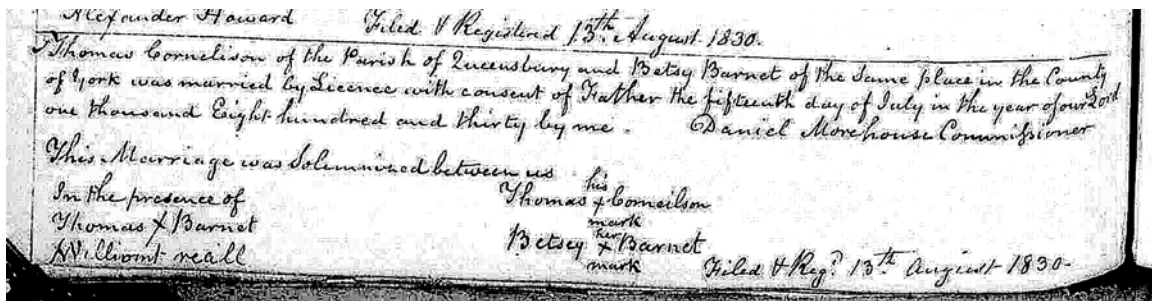 Alexander Howard Filed & Registered 13th August 1830.
Thomas Cornelison of the Parish of Queensbury and Betsy Barnet of the Same place in the County
of York was married by Licence with consent of Father the fifteenth day of July in the year of our Lord
one thousand Eight hundred and thirty by me. Daniel Morehouse Commissioner
This Marriage was Solemnized between us
In the presence of
Thomas X Barnet
William
his
Thomas X Corneilson
mark
her
Betsey X Barnet
mark
Filed & Regd. 13th August 1830-